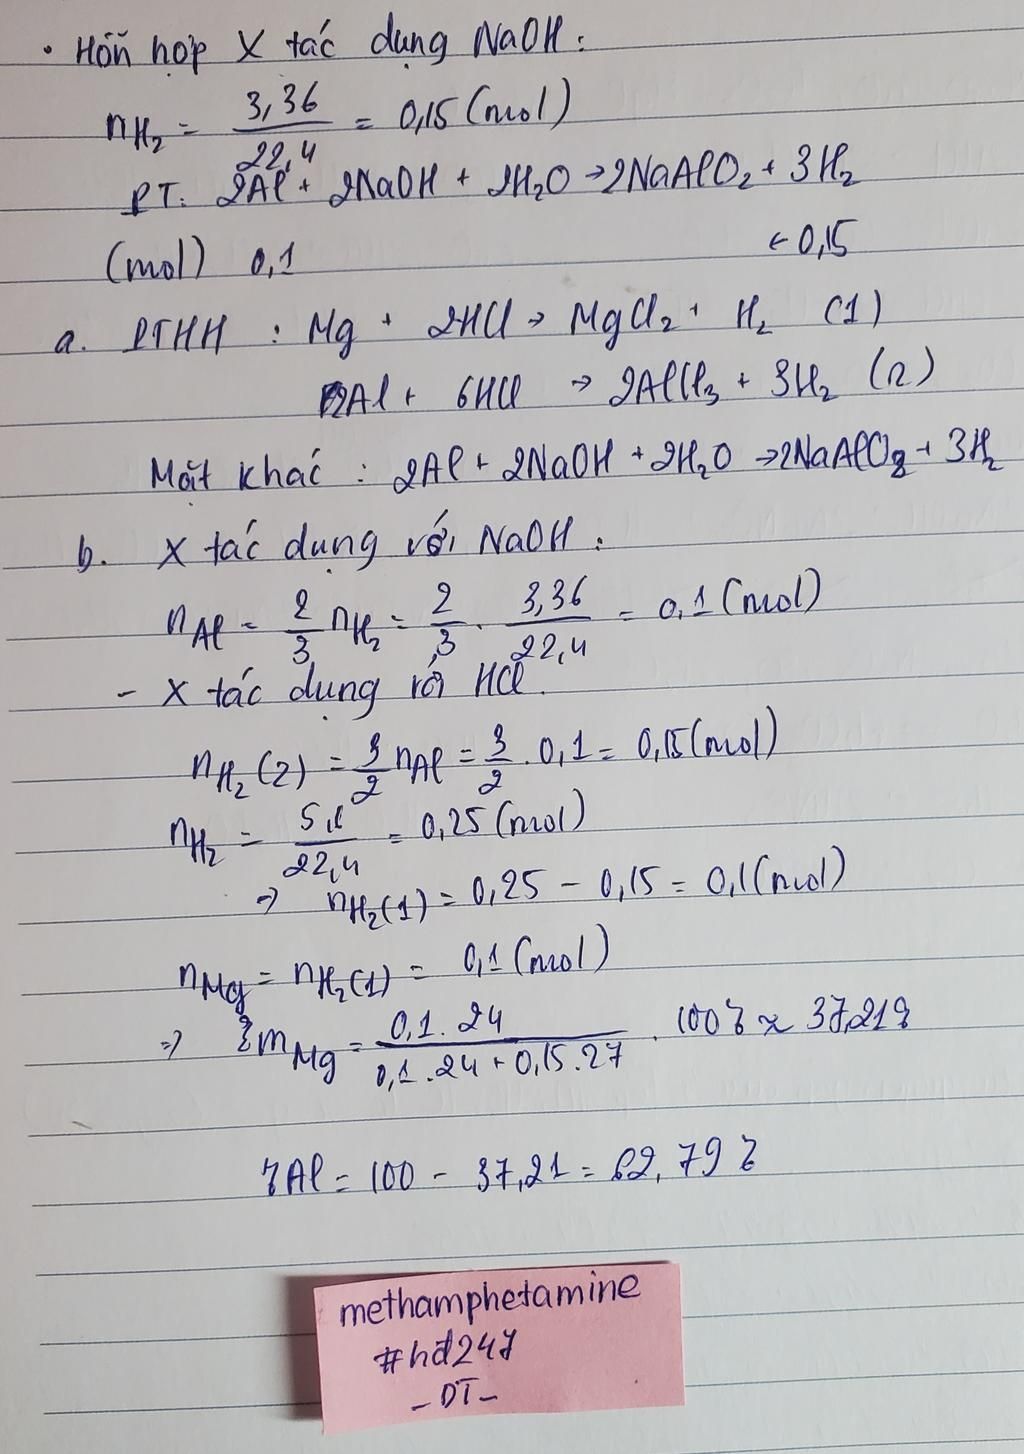 • Hỗn hợp X tác dụng NaOH:
nH₂ = 3,36/22,4 = 0,15 (mol)
PT: 2Al + 2NaOH + 2H₂O → 2NaAlO₂ + 3H₂
(mol) 0,1 ← 0,15
a. PTHH : Mg + 2HCl → MgCl₂ + H₂ (1)
2Al + 6HCl → 2AlCl₃ + 3H₂ (2)
Mặt khác : 2Al + 2NaOH + 2H₂O → 2NaAlO₂ + 3H₂
b. X tác dụng với NaOH :
nAl = 2/3 nH₂ = 2/3 . 3,36/22,4 = 0,1 (mol)
- X tác dụng với HCl.
nH₂(2) = 3/2 nAl = 3/2 . 0,1 = 0,15 (mol)
nH₂ = /22,4 = 0,25 (mol)
⇒ nH₂(1) = 0,25 - 0,15 = 0,1 (mol)
nMg = nH₂(1) = 0,1 (mol)
⇒ %mMg = 0,1.24/0,1.24 + 0,15.27 . 100% ≈ 37,21%
%Al = 100 - 37,21 = 62,79%
methamphetamine
#hđ247
- DT -